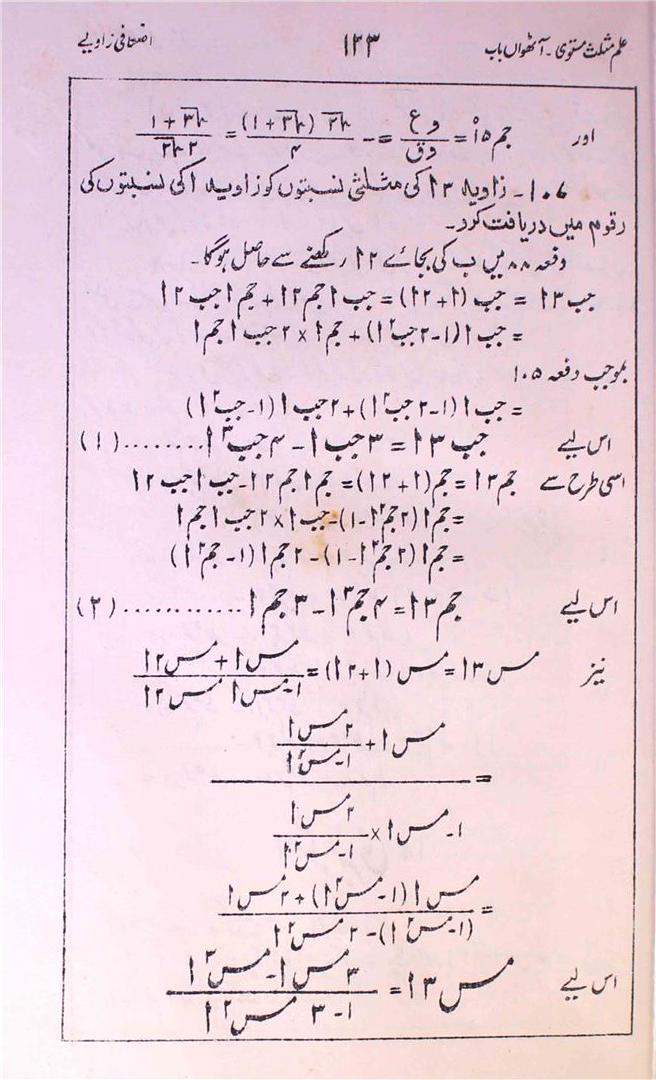 علم مثلث مستوی ۔ آٹھواں باب ۱۲۳ اضعافی زاویے
اور جم ۱۵° = وع/وق = - √۲(√۳+۱)/۴ = (√۳+۱)/(۲√۲)
۱۰۶۔ زاویہ ۳ا کی مثلثی نسبتوں کو زاویہ ا کی نسبتوں کی
رقوم میں دریافت کرو۔
دفعہ ۸۸ میں ب کی بجائے ۲ا رکھنے سے حاصل ہوگا۔
جب ۳ا = جب (ا+۲ا) = جب ا جم ۲ا + جم ا جب ۲ا
= جب ا (۱-۲ جب²ا) + جم ا × ۲ جب ا جم ا
بموجب دفعہ ۱۰۵
= جب ا (۱-۲ جب²ا) + ۲ جب ا (۱-جب²ا)
اس لیے جب ۳ا = ۳ جب ا - ۴ جب³ا ........ (۱)
اسی طرح سے جم ۳ا = جم (ا+۲ا) = جم ا جم ۲ا - جب ا جب ۲ا
= جم ا (۲ جم²ا-۱) - جب ا × ۲ جب ا جم ا
= جم ا (۲ جم²ا-۱) - ۲ جم ا (۱-جم²ا)
اس لیے جم ۳ا = ۴ جم³ا - ۳ جم ا ............ (۲)
نیز مس ۳ا = مس (ا+۲ا) = (مس ا + مس ۲ا)/(۱-مس ا مس ۲ا)
= (مس ا + ۲ مس ا/(۱-مس²ا))
/(۱-مس ا × ۲ مس ا/(۱-مس²ا))
= (مس ا (۱-مس²ا) + ۲ مس ا)/((۱-مس²ا) - ۲ مس²ا)
اس لیے مس ۳ا = (۳ مس ا - مس³ا)/(۱-۳ مس²ا)